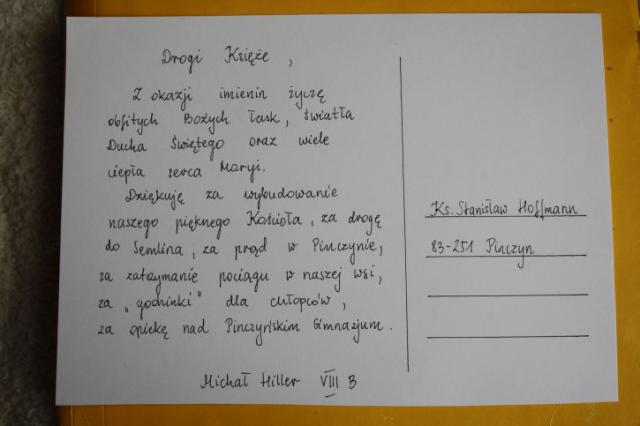 Drogi Księże,
Z okazji imienin życzę
obfitych Bożych łask, światła
Ducha Świętego oraz wiele
ciepła serca Maryi.
Dziękuję za wybudowanie
naszego pięknego Kościoła, za drogę
do Semlina, za prąd w Pinczynie,
za zatrzymanie pociągu w naszej wsi,
za „godzinki" dla chłopców,
za opiekę nad Pinczyńskim Gimnazjum.
Michał Hiller VIII B
Ks. Stanisław Hoffmann
83-251 Pinczyn